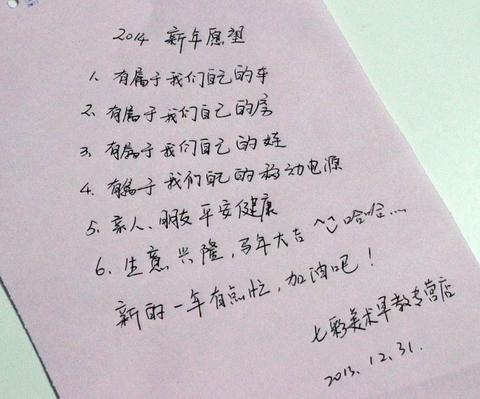 2014 新年愿望
1. 有属于我们自己的车
2. 有属于我们自己的房
3. 有属于我们自己的娃
4. 有属于我们自己的移动电源
5. 亲人、朋友平安健康
6. 生意兴隆,马年大吉 ^U^ 哈哈....
新的一年有点忙,加油吧!
七彩美术早教专营店
2013.12.31.